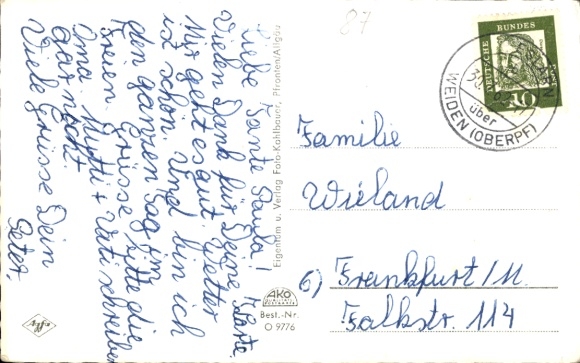 87
Liebe Tante Paula!
Vielen Dank für Deine Karte.
Mir geht es gut. Wetter
ist schön. Und bin ich
den ganzen Tag im
Freien. Grüsse bitte die
Oma. Mutti + Vati schreiben
gar nicht.
Viele Grüsse Dein
Peter.
Eigentum u. Verlag Foto-Kohlbauer, Pfronten/Allgäu
Agfa
AKO
Best.-Nr.
O 9776
DEUTSCHE BUNDES
10
über
WEIDEN (OBERPF)
Familie
Wieland
6) Frankfurt/M.
Falkstr. 114